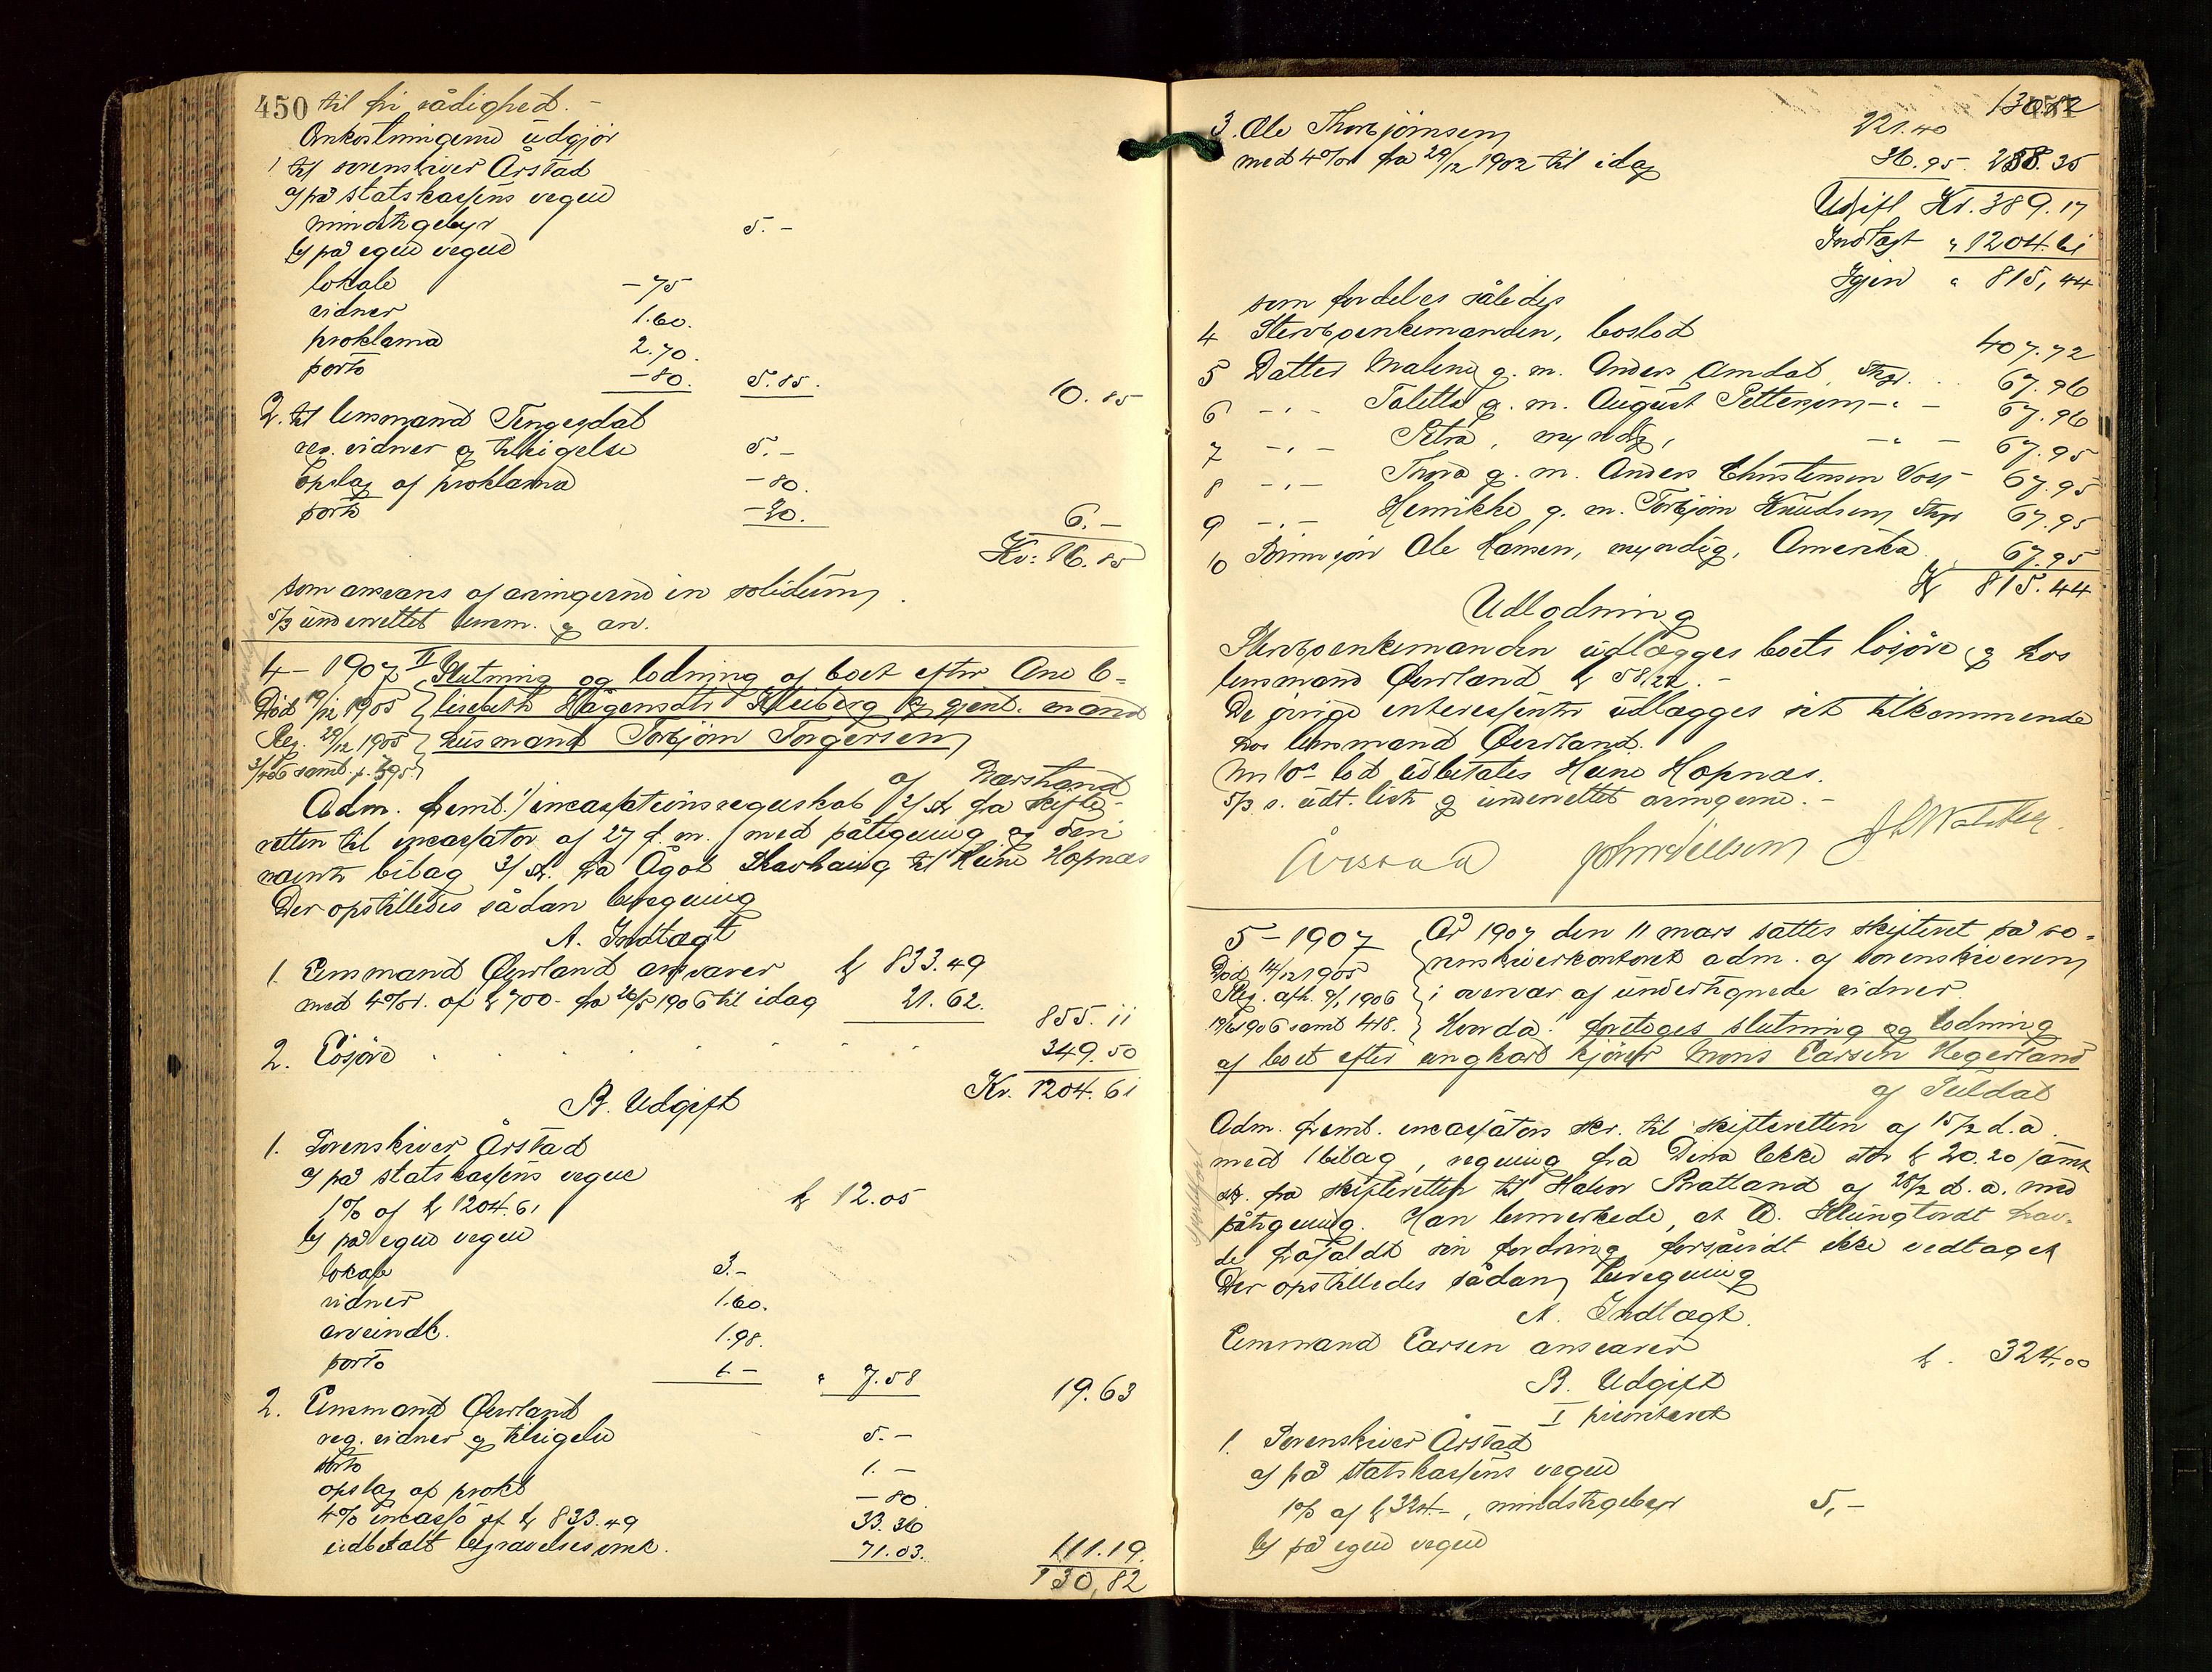 450 til fri rådighed. –
Omkostningerne udgjør
1 til sorenskriver Årstad
a) på statskassens vegne
mindstegebyr 5. –
b) på egne vegne
lokale – 75
vidner 1.60.
proklama 2.70.
porto – 80. 5.85. 10.85
2. til lensmand Tengesdal
reg. vidner og tilsigelse 5. –
opslag af proklama – 80.
porto – 20. 6. –
Kr: 16.85
som ansvares af arvingerne in solidum.
5/3 underrettet lensm. og arv.
4 – 1907 II Slutning og lodning af boet efter Ane E-
Død 19/12 1905 lisebeth Hågensdtr Kleiberg og gjenl. mand
Reg. 29/12 1905 husmand Torbjørn Torgersen
af Nærstrand
Adm. freml. 1/ incassationsregnskab 2/ skr. fra skifte-
retten til incassator af 27 f. m. med påtegning og deri
nævnte bilag 3/ skr. fra Ågot Skarhaug til Heine Hopnæs
Der opstilledes sådan beregning
A. Indtægt
1. Lensmand Øverland ansvarer kr 833.49
med 4% r. af kr 700 – fra 26/5 1906 til idag 21.62. 855.11
2. Løsøre 349.50
Kr. 1204.61
B. Udgift
1. Sorenskriver Årstad
a) på statskassens vegne
1% af kr 1204.61 kr 12.05
b) på egne vegne
lokale 3. –
vidner 1.60.
arveindk. 1.98.
porto 1 – " 7.58 19.63
2. Lensmand Øverland
reg. vidner og tilsigelse 5. –
porto 1. –
opslag af prokl – 80.
4% incasso af kr 833.49 33.36
udbetalt begravelsesomk. 71.03. 111.19.
130,82
130.82
3. Ole Thorbjørnsen 221.40
med 4% r fra 29/12 1902 til idag 36.95 258.35
Udgift Kr. 389.17
Indtægt " 1204.61
Igjen " 815,44
som fordeles således
4 Sterboenkemanden, boslod 407.72
5 Datter Malene g. m. Anders Amdal, 67.96
6 – " – Talette g. m. August Pettersen – " – 67.96
7 – " – Petra, myndig, – " – 67.95
8 – " – Thora g. m. Anders Christensen Vos 67.95
9 – " – Henrikke g. m. Torbjørn Knudsen 67.95
10 Sønnesøn Ole Hansen, myndig, Amerika 67.95
Kr 815.44
Udlodning
Sterboenkemanden udlægges boets løsøre og hos
lensmand Øverland kr 58,22. –
De øvrige interessenter udlægges sit tilkommende
hos lensmand Øverland.
No 10s lod udbetales Heine Hopnæs.
5/3 s. udt. liste og underrettet arvingerne. –
Årstad
5 – 1907 År 1907 den 11 mars sattes skifteret på so-
Død 14/12 1905 renskriverkontoret adm. af sorenskriveren
1906 i overvær af undertegnede vidner.
418. Hvor da: foretoges slutning og lodning
af boet efter ungkarl kjører Mons Larsen Hegerland
af Suldal
Adm. fremb. incassators skr. til skifteretten af 15/2 d.a.
med 1 bilag, regning fra Dina Lekke stor kr 20.20 samt
skr. fra skifteretten til Halvor Bratland af 28/2 d. a. med
påtegning. Han bemerkede, at D. Klungtvedt hav-
de frafaldt sin fordring forsåvidt ikke vedtaget
Der opstilledes sådan beregning
A. Indtægt.
Lensmand Larsen ansvarer kr. 324.00
B. Udgift
I prioriteret
1. Sorenskriver Årstad
a) på statskassens vegne
1% af kr 324. –, mindstegebyr 5, –
b) på egne vegne